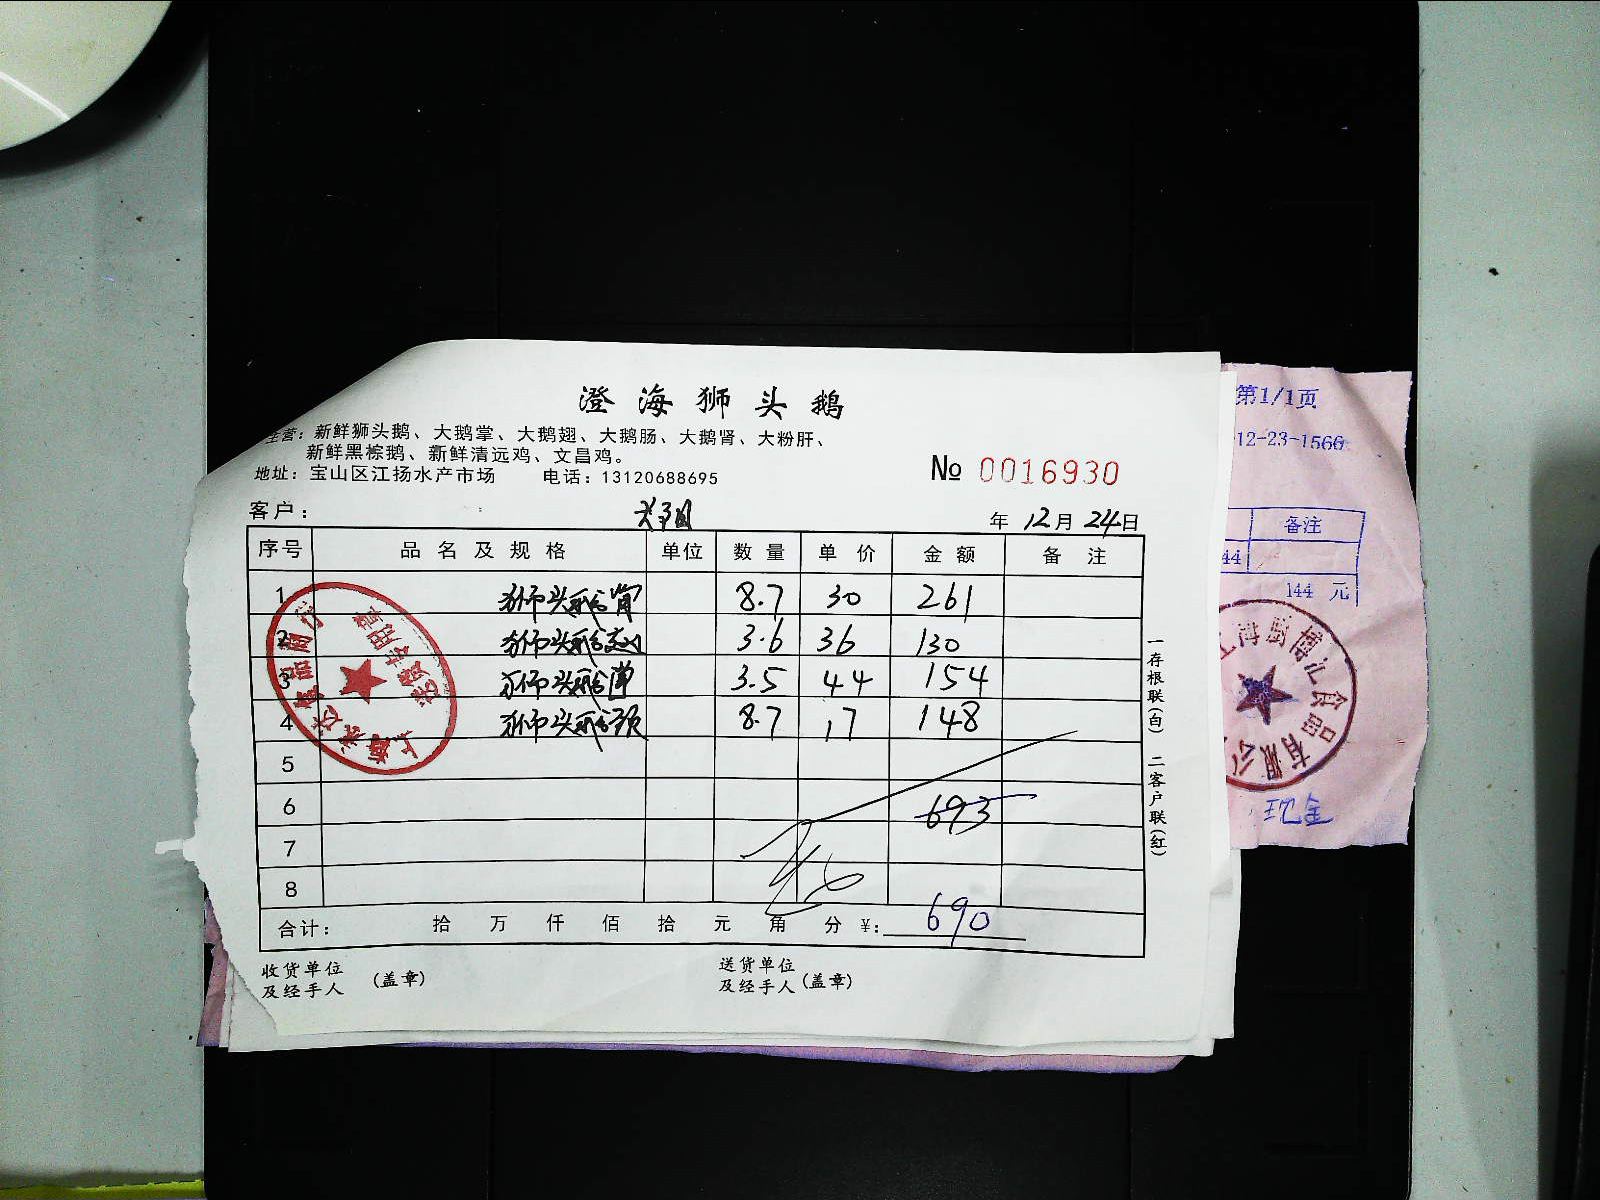 澄海狮头鹅
主营：新鲜狮头鹅、大鹅掌、大鹅翅、大鹅肠、大鹅肾、大粉肝、
新鲜黑棕鹅、新鲜清远鸡、文昌鸡。
地址：宝山区江扬水产市场 电话：13120688695
№ 0016930
客户： 年 12月 24日
序号 品名及规格 单位 数量 单价 金额 备注
1 狮头鹅肾 8.7 30 261
2 狮头鹅 3.6 36 130
3 狮头鹅 3.5 44 154
4 狮头鹅颈 8.7 17 148
5
6 693
7
8
合计： 拾 万 仟 佰 拾 元 角 分 ¥： 690
收货单位及经手人 (盖章)
送货单位及经手人 (盖章)
一存根联(白) 二客户联(红)
第1/1页
12-23-1566
备注
44
144 元
上海 博 食品有限公
现金